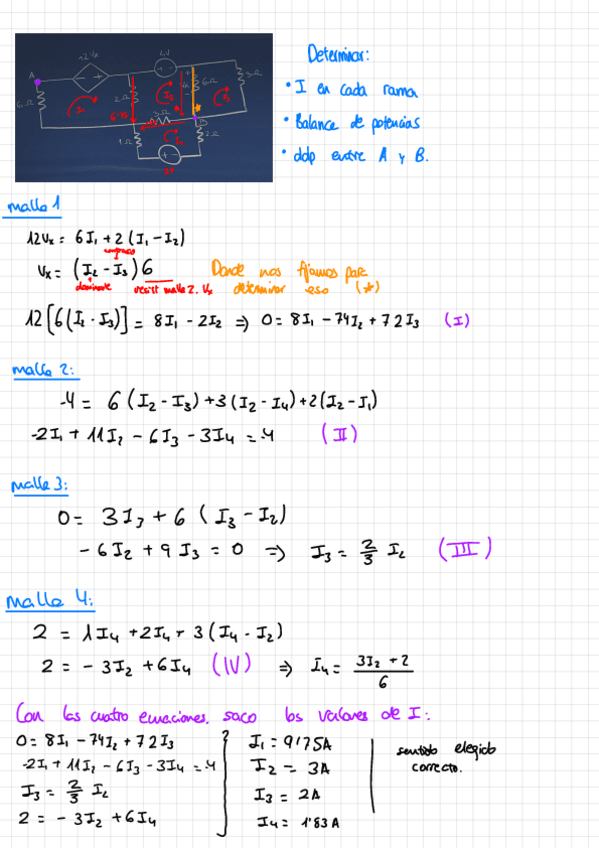 A
12Vx
4V
6Ω
2Ω
6Ω
3Ω
3Ω
B
1Ω
2Ω
2V
Determinar:
• I en cada rama
• Balance de potencias
• ddp entre A y B.
malla 1
12Vx = 6I₁ + 2(I₁ - I₂)
Vx = (I₂ - I₃) 6
Donde nos fijamos para
dominante
resist malla 2. Vx
determinar eso (*)
12[6(I₂ - I₃)] = 8I₁ - 2I₂ => 0 = 8I₁ - 74I₂ + 72I₃ (I)
malla 2:
-4 = 6(I₂ - I₃) + 3(I₂ - I₄) + 2(I₂ - I₁)
-2I₁ + 11I₂ - 6I₃ - 3I₄ = -4 (II)
malla 3:
0 = 3I₃ + 6 (I₃ - I₂)
- 6I₂ + 9I₃ = 0 => I₃ = 2/3 I₂ (III)
Malla 4:
2 = 1I₄ + 2I₄ + 3(I₄ - I₂)
2 = - 3I₂ + 6I₄ (IV) => I₄ = 3I₂ + 2 / 6
Con las cuatro ecuaciones, saco los valores de I:
0 = 8I₁ - 74I₂ + 72I₃
-2I₁ + 11I₂ - 6I₃ - 3I₄ = -4
I₃ = 2/3 I₂
2 = - 3I₂ + 6I₄
I₁ = 9'75A
I₂ = 3A
I₃ = 2A
I₄ = 1'83A
sentido elegido
correcto.